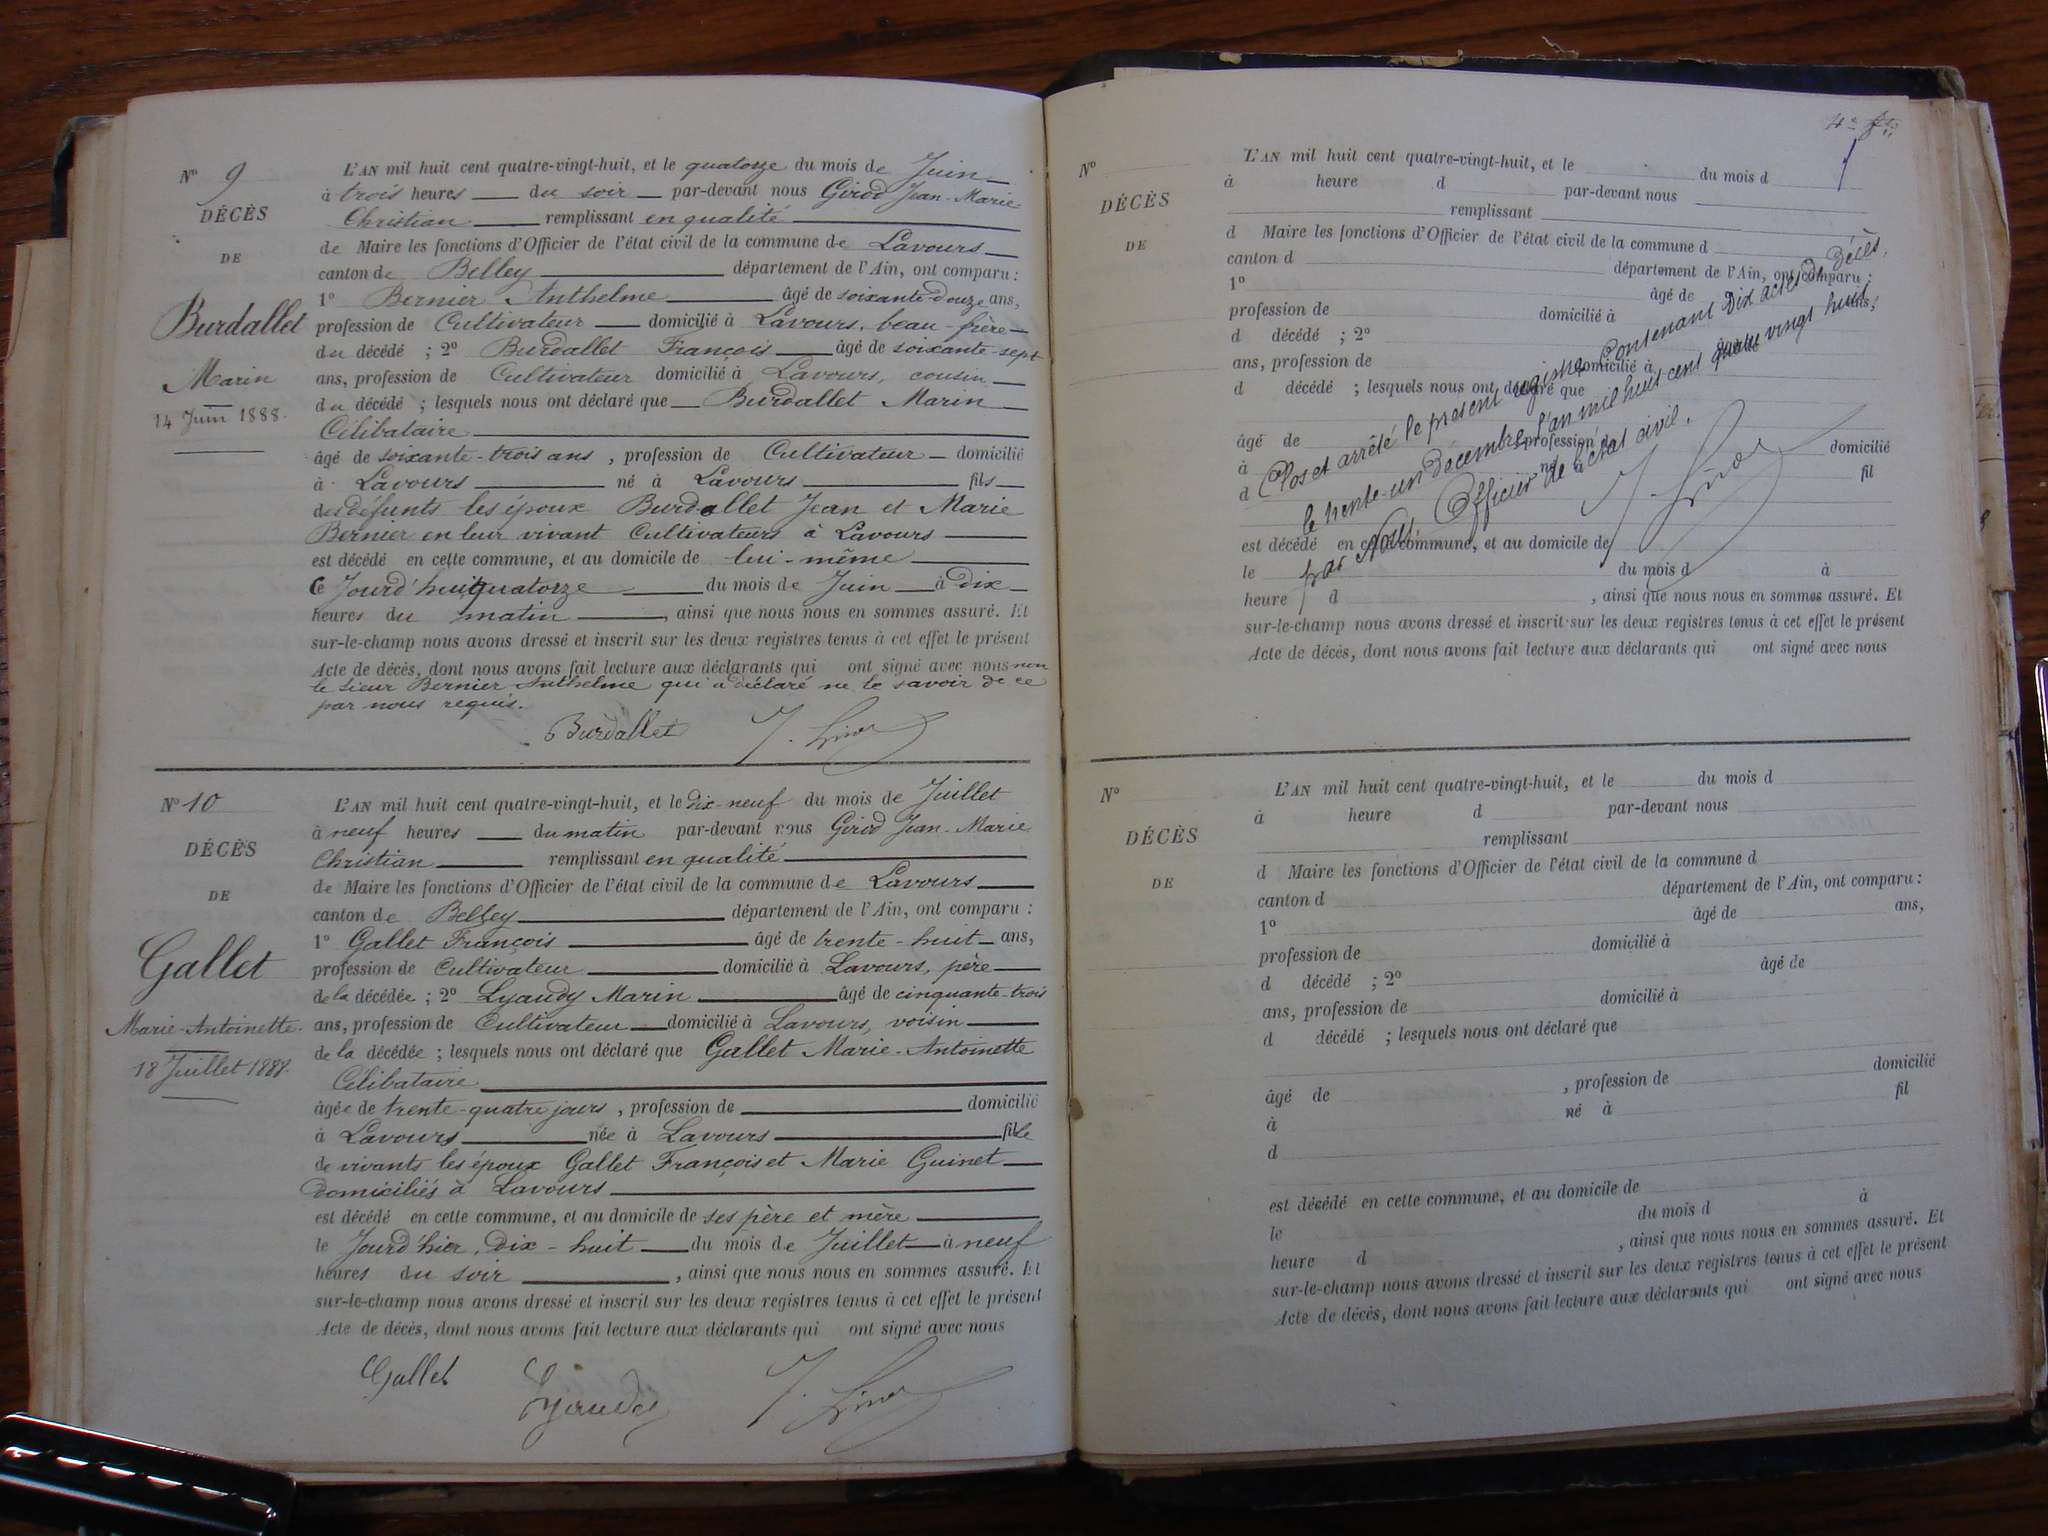 N° 9
DÉCÈS
DE
Burdallet
Marin
14 Juin 1888.
L'AN mil huit cent quatre-vingt-huit, et le quatorze du mois de Juin
à trois heures du soir par-devant nous Girod Jean-Marie
Christian remplissant en qualité
de Maire les fonctions d'Officier de l'état civil de la commune de Lavours
canton de Belley département de l'Ain, ont comparu :
1° Bernier Anthelme âgé de soixante-douze ans,
profession de Cultivateur domicilié à Lavours, beau-frère
du décédé ; 2° Burdallet François âgé de soixante-sept
ans, profession de Cultivateur domicilié à Lavours, cousin
du décédé ; lesquels nous ont déclaré que Burdallet Marin
Célibataire
âgé de soixante-trois ans, profession de Cultivateur domicilié
à Lavours né à Lavours fils
des défunts les époux Burdallet Jean et Marie
Bernier en leur vivant Cultivateurs à Lavours
est décédé en cette commune, et au domicile de lui-même
Ce Jourd'hui quatorze du mois de Juin à Dix
heures du matin, ainsi que nous nous en sommes assuré. Et
sur-le-champ nous avons dressé et inscrit sur les deux registres tenus à cet effet le présent
Acte de décès, dont nous avons fait lecture aux déclarants qui ont signé avec nous non
le sieur Bernier Anthelme qui a déclaré ne le savoir de ce
par nous requis.
Burdallet J. Girod
N° 10
DÉCÈS
DE
Gallet
Marie-Antoinette.
18 Juillet 1888.
L'AN mil huit cent quatre-vingt-huit, et le dix-neuf du mois de Juillet
à neuf heures du matin par-devant nous Girod Jean-Marie
Christian remplissant en qualité
de Maire les fonctions d'Officier de l'état civil de la commune de Lavours
canton de Belley département de l'Ain, ont comparu :
1° Gallet François âgé de trente-huit ans,
profession de Cultivateur domicilié à Lavours, père
de la décédée ; 2° Lyaudy Marin âgé de cinquante-trois
ans, profession de Cultivateur domicilié à Lavours, voisin
de la décédée ; lesquels nous ont déclaré que Gallet Marie-Antoinette
Célibataire
âgée de trente-quatre jours, profession de domicilié
à Lavours née à Lavours fille
de vivants les époux Gallet François et Marie Guinet
Domiciliés à Lavours
est décédé en cette commune, et au domicile de ses père et mère
le Jourd'hier, Dix-huit du mois de Juillet à neuf
heures du soir, ainsi que nous nous en sommes assuré. Et
sur-le-champ nous avons dressé et inscrit sur les deux registres tenus à cet effet le présent
Acte de décès, dont nous avons fait lecture aux déclarants qui ont signé avec nous
Gallet Lyaudy J. Girod
N°
DÉCÈS
DE
L'AN mil huit cent quatre-vingt-huit, et le du mois d
à heure d par-devant nous
remplissant
d Maire les fonctions d'Officier de l'état civil de la commune d
canton d département de l'Ain, ont comparu :
1° âgé de ans,
profession de domicilié à
d décédé ; 2° âgé de
ans, profession de domicilié à
d décédé ; lesquels nous ont déclaré que
âgé de , profession de domicilié
à né à fil
d
est décédé en cette commune, et au domicile de
le du mois d à
heure d , ainsi que nous nous en sommes assuré. Et
sur-le-champ nous avons dressé et inscrit sur les deux registres tenus à cet effet le présent
Acte de décès, dont nous avons fait lecture aux déclarants qui ont signé avec nous
Clos et arrêté le présent registre Contenant Dix actes de Décès,
le trente-un décembre l'an mil huit cent quatre vingt huit,
par Nous, Officier de l'état civil.
J. Girod
N°
DÉCÈS
DE
L'AN mil huit cent quatre-vingt-huit, et le du mois d
à heure d par-devant nous
remplissant
d Maire les fonctions d'Officier de l'état civil de la commune d
canton d département de l'Ain, ont comparu :
1° âgé de ans,
profession de domicilié à
d décédé ; 2° âgé de
ans, profession de domicilié à
d décédé ; lesquels nous ont déclaré que
âgé de , profession de domicilié
à né à fil
d
est décédé en cette commune, et au domicile de
le du mois d à
heure d , ainsi que nous nous en sommes assuré. Et
sur-le-champ nous avons dressé et inscrit sur les deux registres tenus à cet effet le présent
Acte de décès, dont nous avons fait lecture aux déclarants qui ont signé avec nous